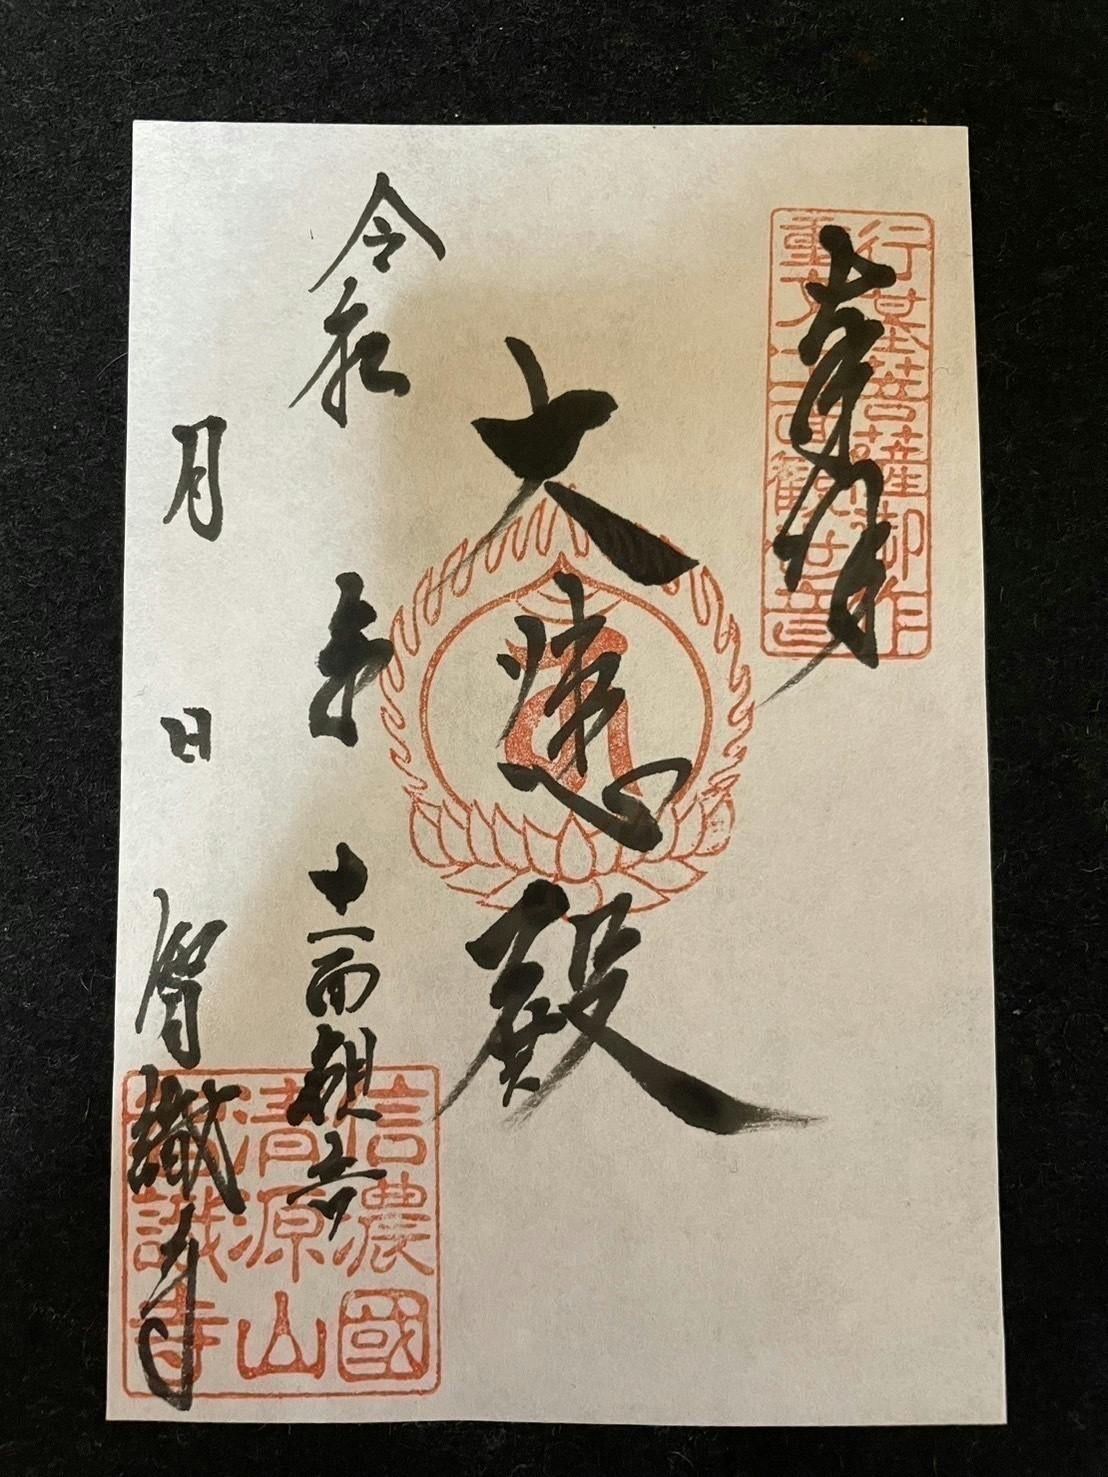 奉拝
行基菩薩御作
重文十一面觀世音
大悲殿
令和 年
十一面観音
月 日
智識寺
信濃國
清源山
智識寺